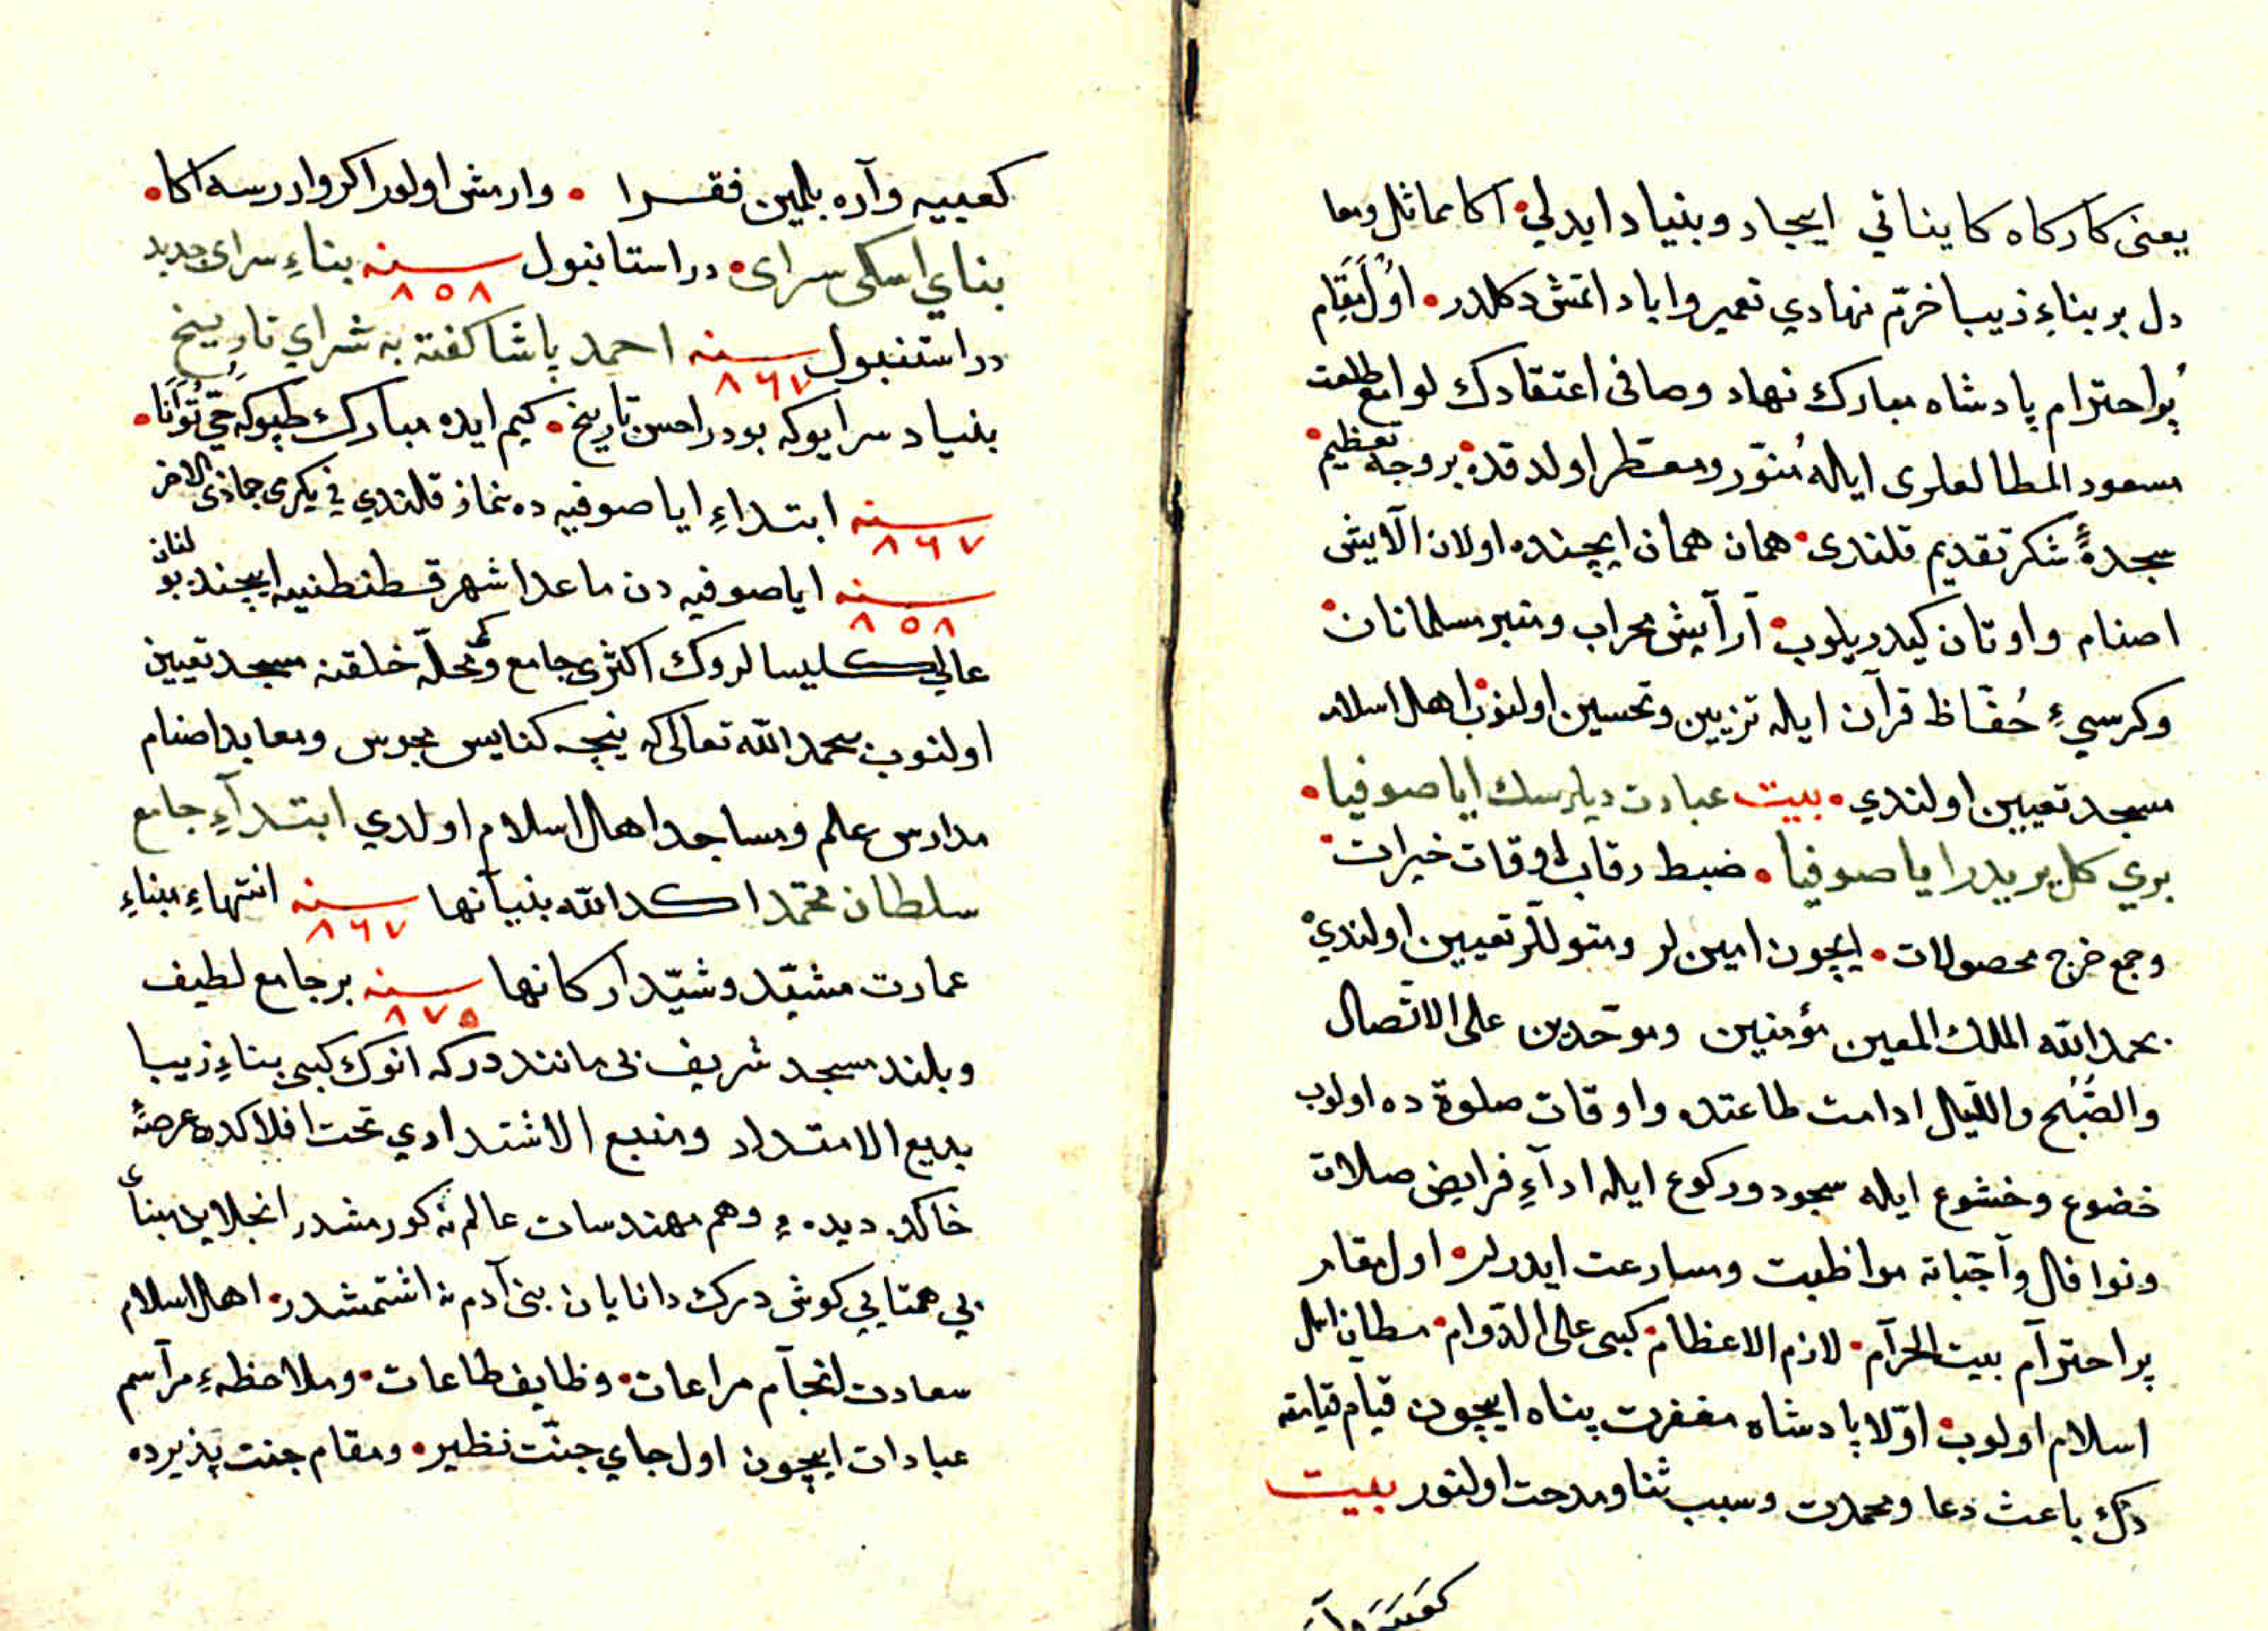 يعنى كارکاه كايناتي ايجاد وبنياد ايدلي اكا مماثل ومعا
دل بر بناءِ زيبا خرّم نهادي تعمير واباد اتمش دكلدر اوُل مَقَام
پُر احترام پادشاه مبارك نهاد وصافى اعتقادك لوامع طلعت
مسعود المطالعلرى ايله مُنوّر ومعطر اولدقده بر وجه تعظيم
سجدهٔ شكر تقديم قلندى همان همان ايچنده اولان الآيش
اصنام واوتان كيدريلوب آرآيش محراب ومنبر مسلمانان
وكرسيءِ حُفّاظ قرآن ايله تزيين وتحسين اولنوب اهل اسلامه
مسجد تعيين اولندي بيت عبادت ديلرسك اياصوفيا
يوري كل بريدر اياصوفيا ضبط رقاب اوقات خيرات
وجمع خرج محصولات ايچون امين لر ومتوللر تعيين اولندي
بحمد الله الملك المعين مؤمنين وموحّدين على الاتّصال
والصُّبْح والليل ادامت طاعتده واوقات صلوة ده اولوب
خضوع وخشوع ايله سجود وركوع ايله ادآءِ فرايض صلات
ونوافل وآجباته مواظبت ومسارعت ايدرلر اول مقام
پر احترآم بيت الحرآم لازم الاعظام كبى على الدّوام مطان اهل
اسلام اولوب اوّلا پادشاه مغفرت پناه ايچون قيام قيامته
دك باعث دعا ومحمدت وسبب ثنا ومدحت اولنور بيت
كعبَيَه وآرَ
كعبييه وآره بلمين فقرا وارمش اولور اكر واررسه اكا
بناي اسكى سراى در استانبول سنه ٨٥٨ بناءِ سراى جديد
در استنبول سنه ٨٦٧ احمد پاشا كفته به شراي تاريخ
بنياد سرايوكه بودر احسن تاريخ كيم ايده مبارك طپوكه حَيّ تُوَانَا
سنه ٨٦٧ ابتداءِ اياصوفيه ده نماز قلندي في يكرمى جماذى الاخر
سنه ٨٥٨ اياصوفيه دن ماعدا شهر قسطنطنيه ايچنده بولنان
عالى كليسالروك اكثرى جامع وكمى محلّه خلقنه مسجد تعيين
اولنوب بحمد الله تعالى كه نيچه كنايس مجوس ومعابد اصنام
مدارس علم ومساجد اهل اسلام اولدي ابتدآءِ جامع
سلطان محمّد اكد الله بنيانها سنه ٨٦٧ انتهاءِ بناءِ
عمارت مشيّد وشيّد اركانها سنه ٨٧٥ بر جامع لطيف
وبلند مسجد شريف بى مانند دركه انوك كبى بناءِ زيبا
بديع الامتداد ومنيع الاشتدادي تحت افلاكده عرصهٔ
خاكده ديدهءِ وهم مهندسات عالم نه كورمشدر انجلاين بناءِ
بي همتايي كوش درك دانايان بنى آدم نه اشتمشدر اهل اسلام
سعادت انجآم مراعات وظايف طاعات وملاحظهءِ مرآسم
عبادات ايچون اول جاي جنّت نظير ومقام جنت پذيرده